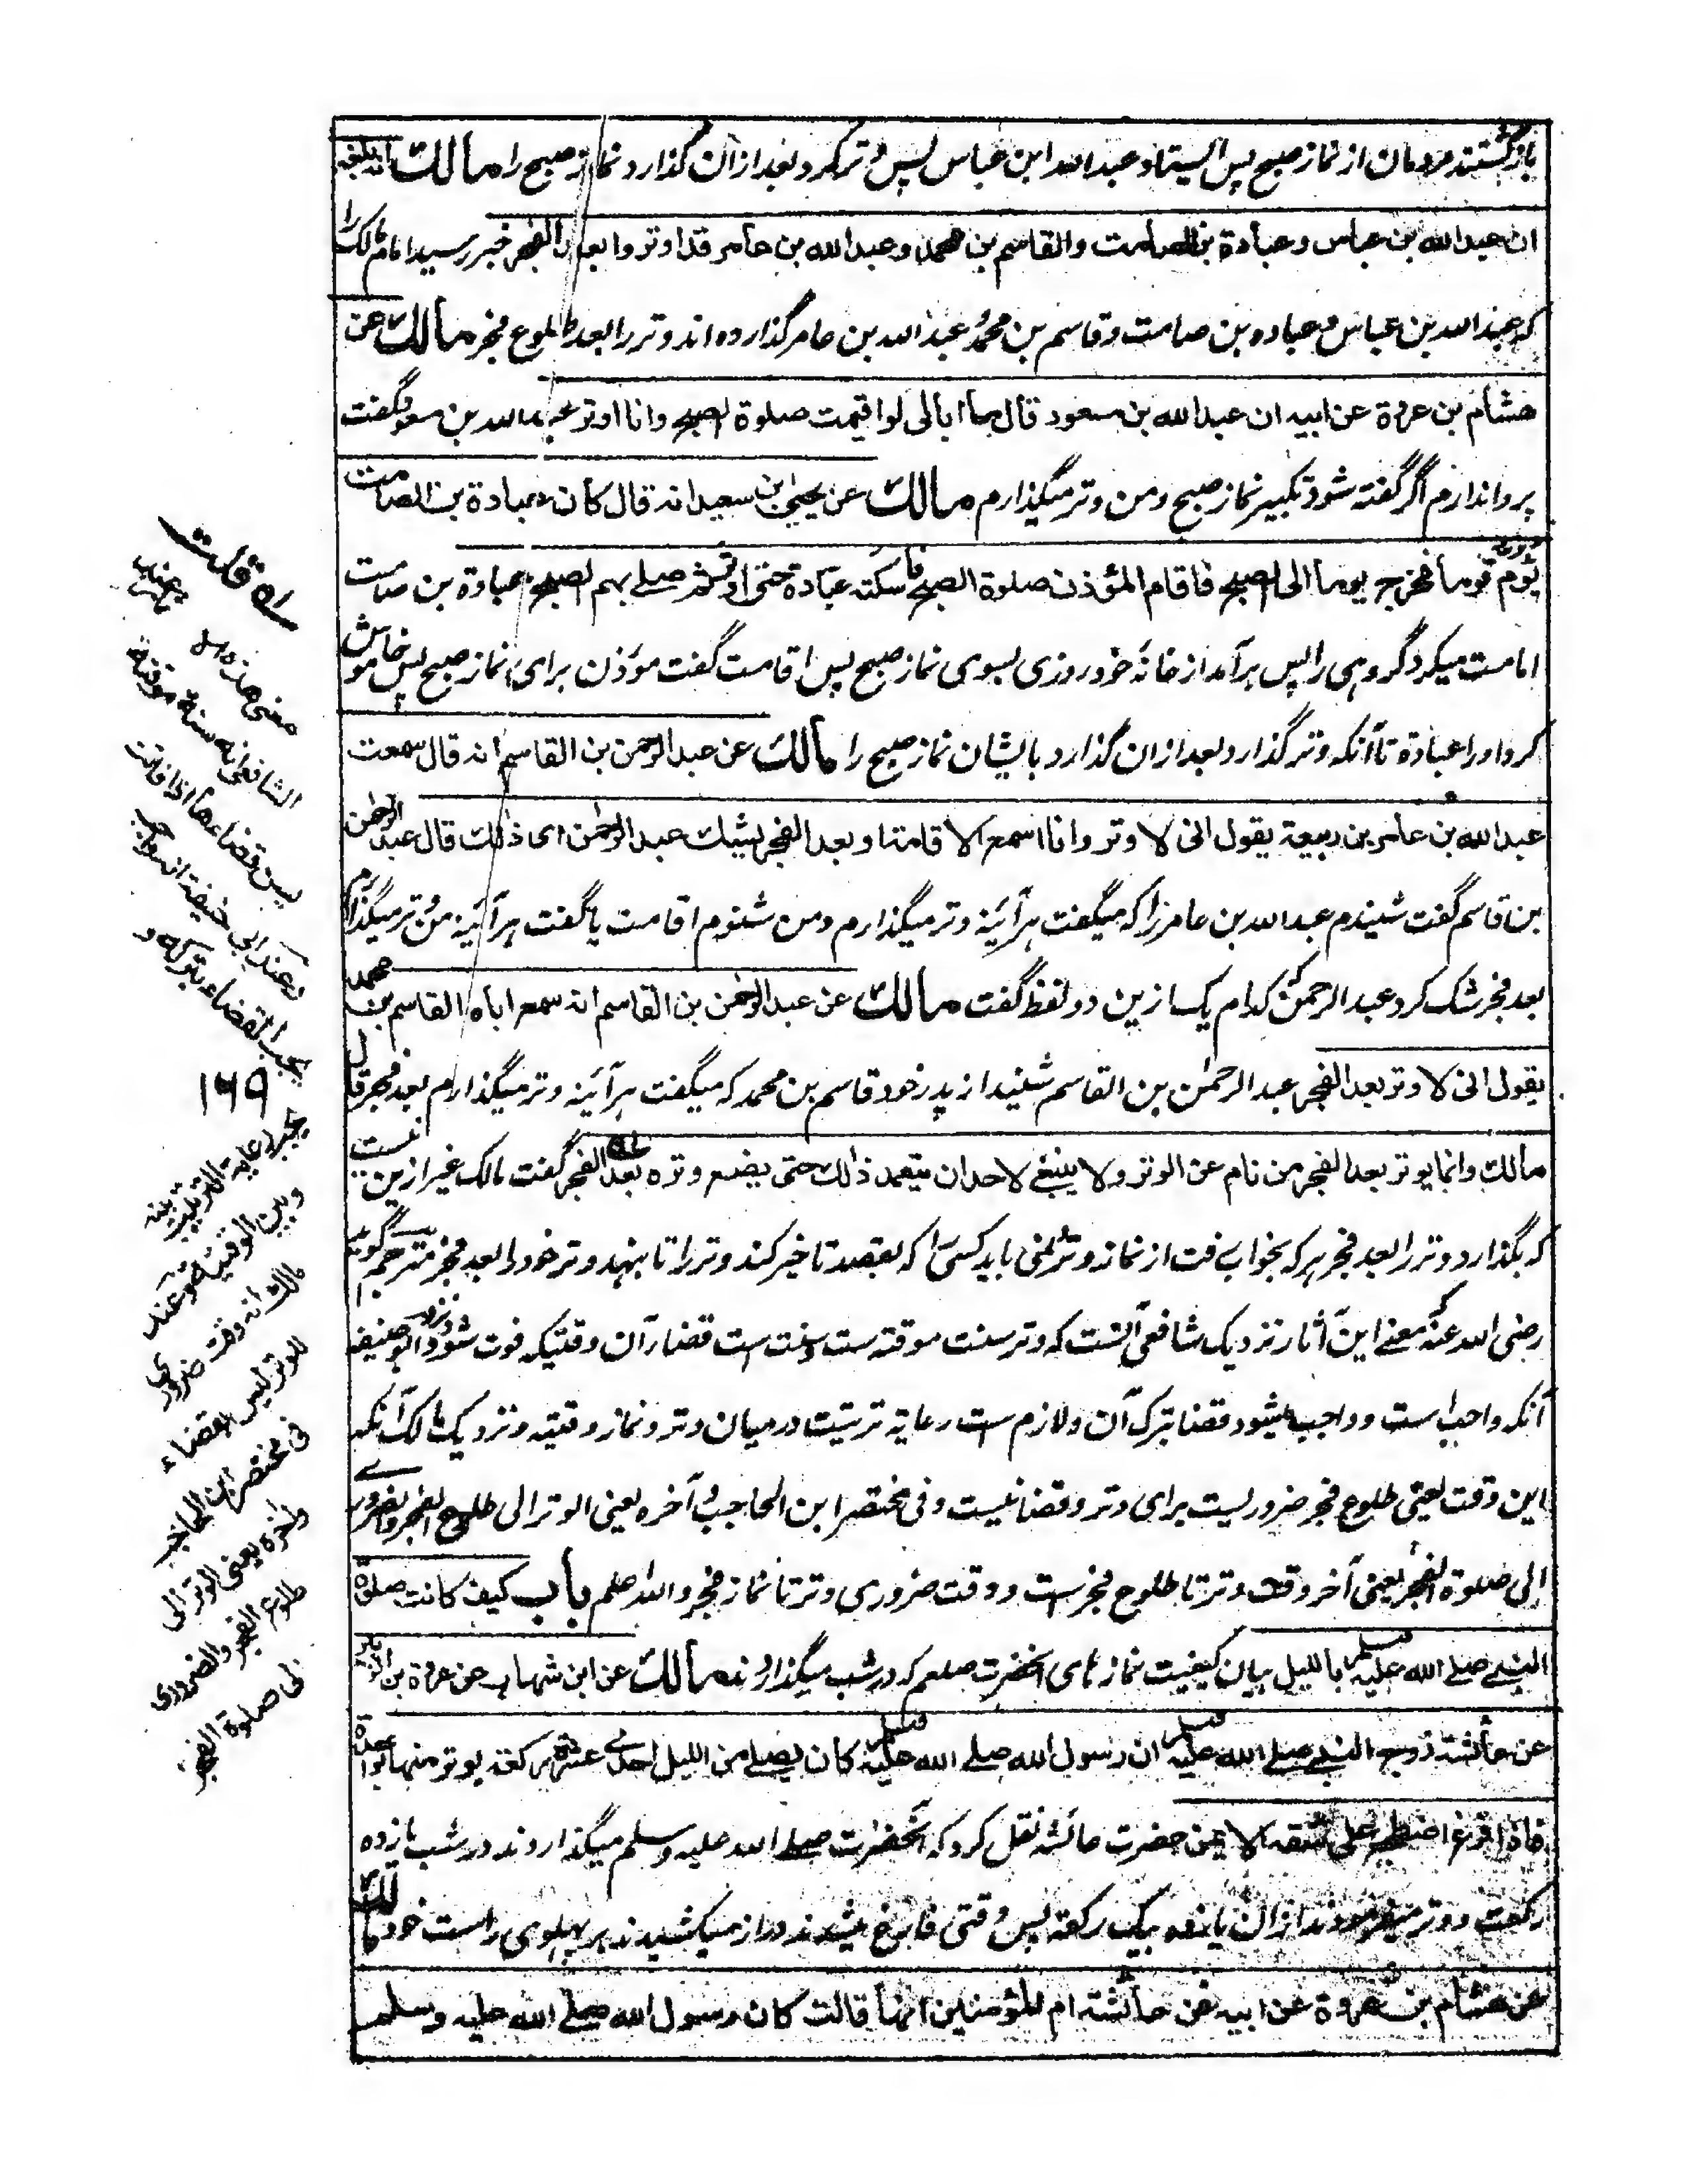 بازگشتند مردمان از نماز صبح پس ایستاد عبد الله ابن عباس پس وتر کرد بعد ازان گذارد نماز صبح را مالك انه بلغه
ان عبد الله بن عباس وعبادة بن الصامت والقاسم بن محمد وعبد الله بن عامر قد اوتروا بعد الفجر خبر رسید امام مالک را
که عبد الله بن عباس و عباده بن صامت و قاسم بن محمد و عبد الله بن عامر گذارده اند وتر را بعد طلوع فجر مالك عن
هشام بن عروة عن ابيه ان عبد الله بن مسعود قال ما ابالى لو اقيمت صلوة الصبح وانا اوتر عبد الله بن مسعود گفت
پروا ندارم اگر گفته شود تکبیر نماز صبح و من وتر میگذارم مالك عن يحيى ابن سعيد انه قال كان عبادة بن الصامت
يؤم قوما فخرج يوما الى الصبح فاقام المؤذن صلوة الصبح فاسكته عبادة حتى اوتر ثم صلے بهم الصبح عبادة بن صامت
امامت میکرد گروهی را پس برآمد از خانهٔ خود روزی بسوی نماز صبح پس اقامت گفت موذن برای نماز صبح پس خاموش
کرد اورا عبادة تا آنکه وتر گذارد بعد ازان گذارد با ایشان نماز صبح را مالك عن عبد الرحمن بن القاسم انه قال سمعت
عبد الله بن عامر بن ربيعة يقول انى لاوتر وانا اسمع الاقامة او بعد الفجر يشك عبد الرحمن اى ذلك قال عبد الرحمن
بن قاسم گفت شنیدم عبد الله بن عامر را که میگفت هر آئینه وتر میگذارم و من شنوم اقامت یا گفت هر آئینه من وتر میگذارم
بعد فجر شک کرد عبد الرحمن که کدام یک ازین دو لفظ گفت مالك عن عبد الرحمن بن القاسم انه سمع اباه القاسم بن محمد
يقول انى لاوتر بعد الفجر عبد الرحمن بن القاسم شنید از پدر خود قاسم بن محمد که میگفت هر آئینه وتر میگذارم بعد فجر قال
مالك وانما يوتر بعد الفجر من نام عن الوتر ولا ينبغى لاحد ان يتعمد ذلك حتى يضع وتره بعد الفجر گفت مالک غیر ازین نیست
که بگذارد وتر را بعد فجر هر که بخواب رفت از نماز وتر و نمی باید کسی را که بقصد تاخیر کند وتر را تا بنهد وتر خود را بعد فجر مترجم گوید
رضی الله عنه معنے این آثار نزدیک شافعی آنست که وتر سنت موقته ست و سنت است قضاء آن وقتیکه فوت شود و نزد ابو حنیفه
آنکه واجب است و واجب میشود قضا بترک آن و لازم ست رعایة ترتیب درمیان وتر و نماز وقتیه و نزدیک مالک آنکه
این وقت یعنی طلوع فجر ضروریست برای وتر و قضا نیست و فی مختصر ابن الحاجب و آخره یعنی الوتر الی طلوع الفجر والضروری
الی صلوة الفجر یعنی آخر وقت وتر تا طلوع فجر ست و وقت ضروری وتر تا نماز فجر و الله اعلم باب كيف كانت صلوة
النبي صلے الله عليه وسلم بالليل بیان کیفیت نمازهای آنحضرت صلعم که در شب میگذاردند مالك عن ابن شهاب عن عروة بن الزبير
عن عائشة زوج النبي صلے الله عليه وسلم ان رسول الله صلے الله عليه وسلم كان يصلے من الليل احدى عشرة ركعة يوتر منها بواحدة
فاذا فرغ اضطجع على شقه الايمن حضرت عائشه نقل کرد که آنحضرت صلے الله علیه وسلم میگذاردند در شب یازده
رکعت و وتر میفرمودند ازان یازده بیک رکعة پس وقتی فارغ میشدند دراز میکشیدند بر پهلوی راست خود مالك
عن هشام بن عروة عن ابيه عن عائشة ام المؤمنين انها قالت كان رسول الله صلے الله عليه وسلم
قلت
معنى هذه عند
الشافعى انه سنة موقتة
يسن قضاءها اذا فاتت
وعند ابى حنيفة انه واجب
يجب القضاء بتركه و
۱۶۹
يجب رعاية الترتيب بينه
وبين الوقتية وعند
مالك انه وقت ضرورى
للوتر ليس بقضاء
فى مختصر ابن الحاجب
واخره يعنى الوتر الى
طلوع الفجر والضرورى
الى صلوة الفجر